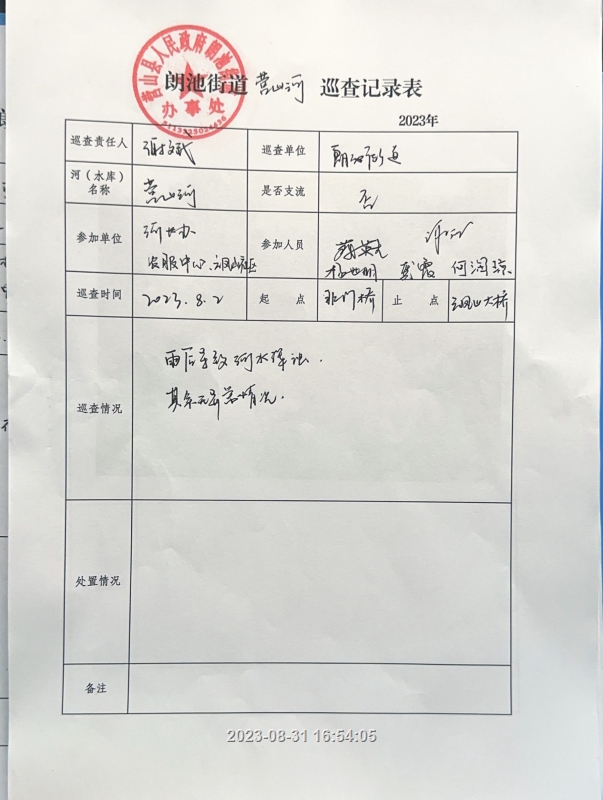 营山县人民政府朗池街道
办事处
5113225024436
朗池街道 营山河 巡查记录表
2023年
巡查责任人 张文武 巡查单位 朗池街道
河（水库）名称 营山河 是否支流 否
参加单位 河长办 参加人员
发服中心、
夏霞 何润琼
巡查时间 2023.8.2 起 点 北门桥 止 点 大桥
巡查情况 雨后导致河水浑浊.
其余无异常情况.
处置情况
备注
2023-08-31 16:54:05